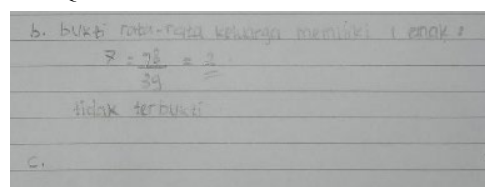 b. bukti rata-rata keluarga memiliki 1 anak :
x̄ = 78/39 = 2
tidak terbukti
c.